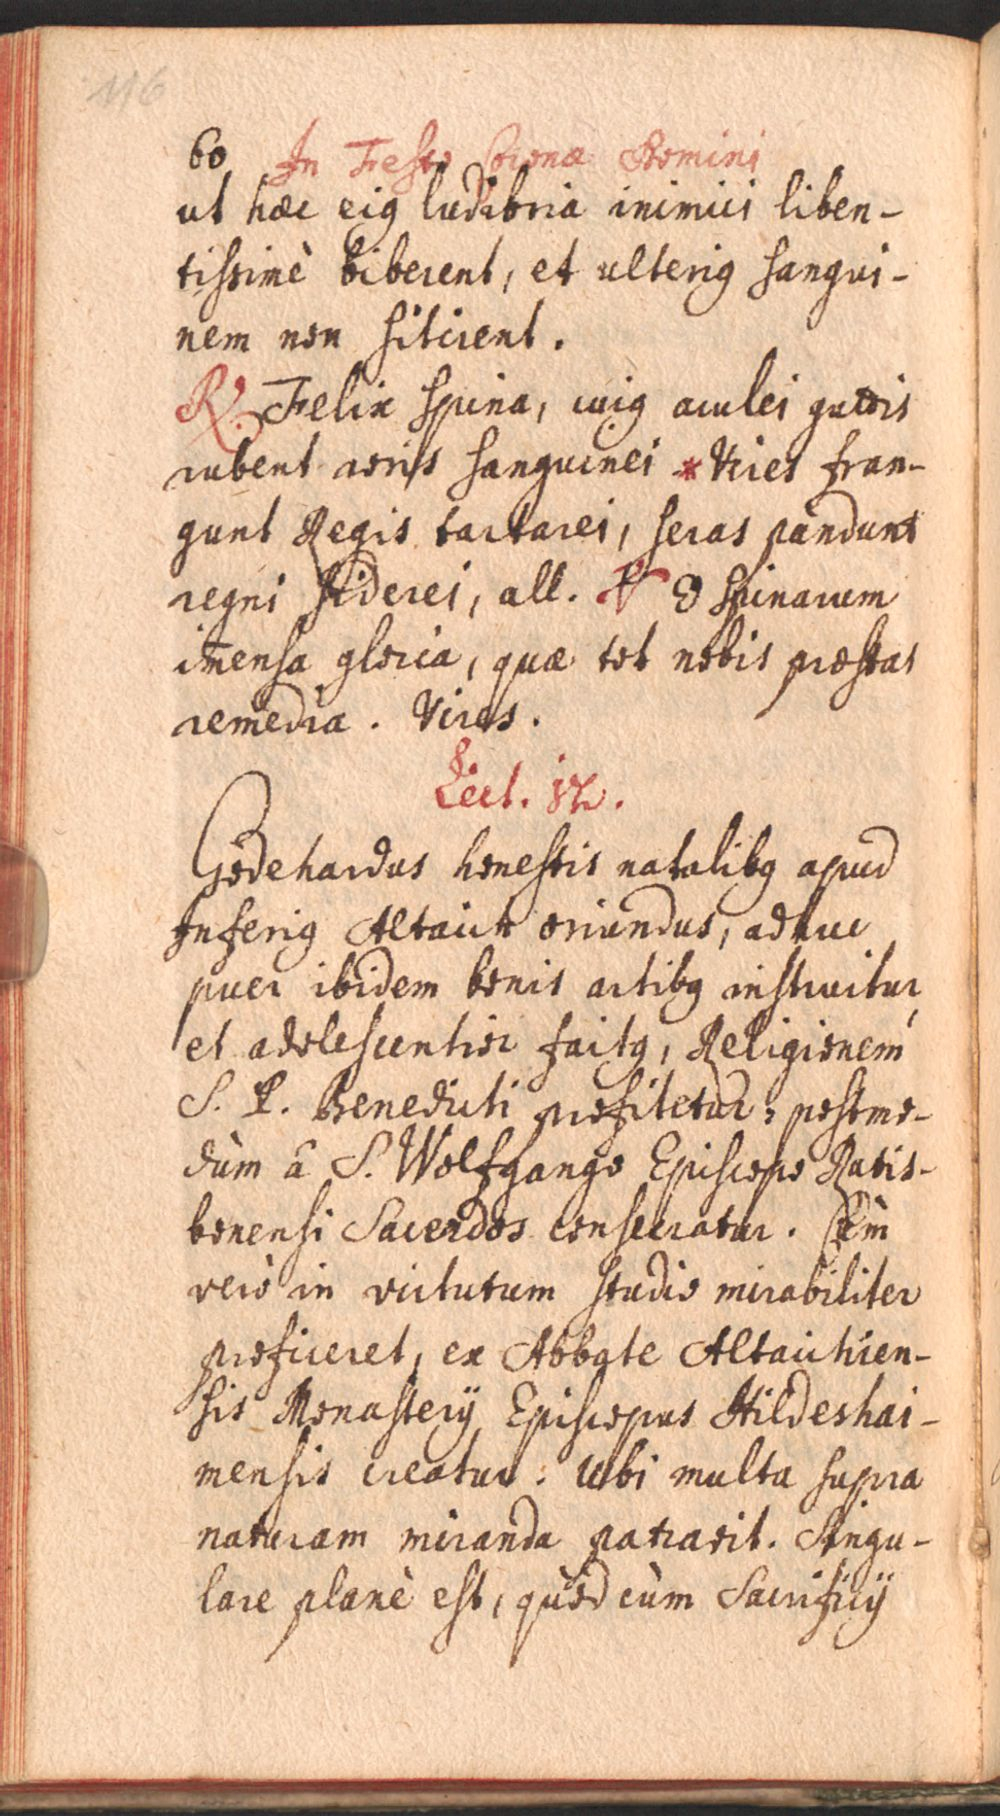 116
60 In Festo Coronæ Domini
ut hæc eig ludibria inimici liben-
tissimè biberent, et ulterig sangui-
nem non sitirent.
R. Felix spina, cuig aculei guttis
rubent roris sanguinei * Vires fran-
gunt Regis tartarei, seras pandunt
regni siderei, all. V O spinarum
im̄ensa gloria, quæ tot nobis præstas
remedia. Vires.
Lect. iv.
Godehardus honestis natalibg apud
Inferig Altaich oriundus, adhuc
puer ibidem bonis artibg instruitur,
et adolescentior factg, Religionem
S. P. Benedicti profitetur; postmo-
dùm â S. Wolfgango Episcopo Ratis-
bonensi Sacerdos consecratur. Cùm
verò in virtutum studio mirabiliter
proficeret, ex Abbate Altaichien-
sis Monasterÿ Episcopus Hildeshai-
mensis creatur. Ubi multa supra
naturam miranda patravit. Singu-
lare planè est, quòd cùm Sacrificÿ